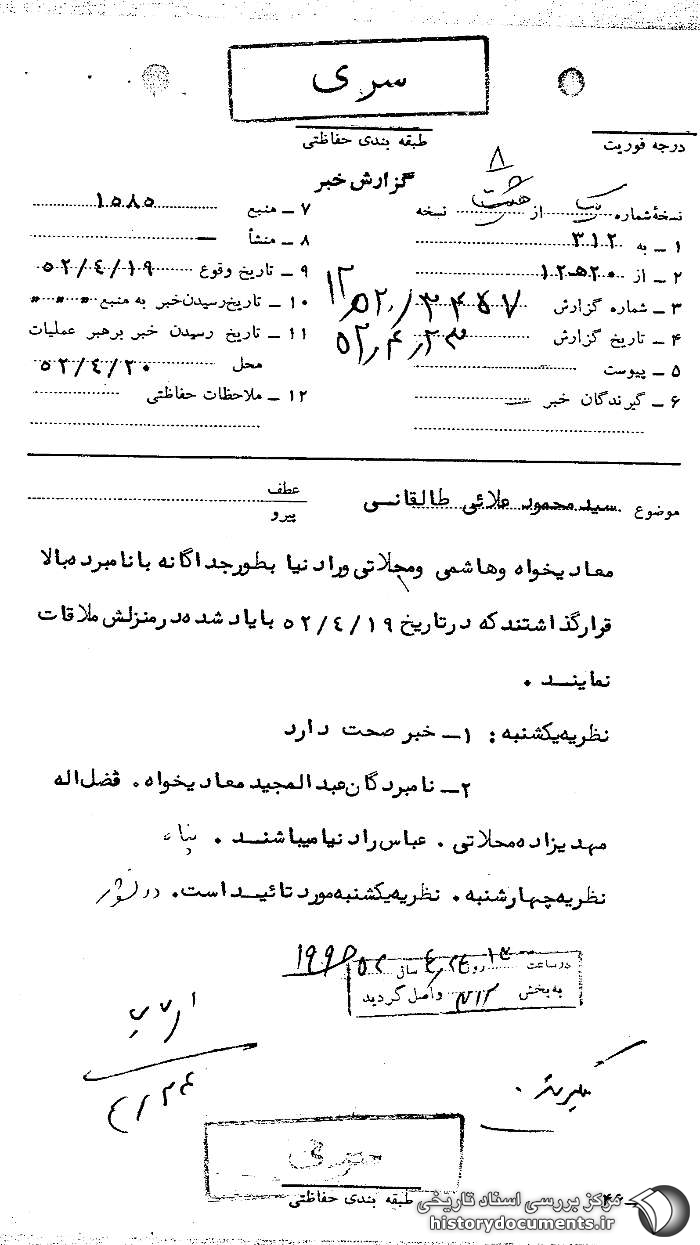 سری
طبقه بندی حفاظتی
درجه فوریت
۸
گزارش خبر
نسخهٔ شماره یک از هشت نسخه
۱ ـ به ۳۱۲
۲ ـ از ۲۰ ﻫ ۱۲
۳ ـ شماره گزارش
۴ ـ تاریخ گزارش ۵۲٫۴٫۲۳
۵ ـ پیوست
۶ ـ گیرندگان خبر
۷ ـ منبع ۱۵۸۵
۸ ـ منشأ ـ
۹ ـ تاریخ وقوع ۵۲/۴/۱۹
۱۰ ـ تاریخ رسیدن خبر به منبع " " "
۱۱ ـ تاریخ رسیدن خبر برهبر عملیات
محل ۵۲/۴/۲۰
۱۲ ـ ملاحظات حفاظتی
موضوع سید محمود علائی طالقانی
عطف
پیرو
معادیخواه وهاشمی ومحلاتی وراد نیا بطور جداگانه با نامبرده بالا
قرار گذاشتند که در تاریخ ۵۲/۴/۱۹ با یاد شده در منزلش ملاقات
نماینـد .
نظریه یکشنبه : ۱ـ خبر صحت دارد
۲ـ نامبردگان عبدالمجید معادیخواه . فضل اله
مهدیزاده محلاتی . عباس راد نیا میباشنـد .
نظریه چهارشنبه . نظریه یکشنبه مورد تائیـد است.
در ساعت ۱۳ روز ۲۴ ۴ سال ۵۲
به بخش ۳۱۲ واصل گردید
۴/۲۴
طبقه بندی حفاظتی
مرکز بررسی اسناد تاریخی
historydocuments.ir